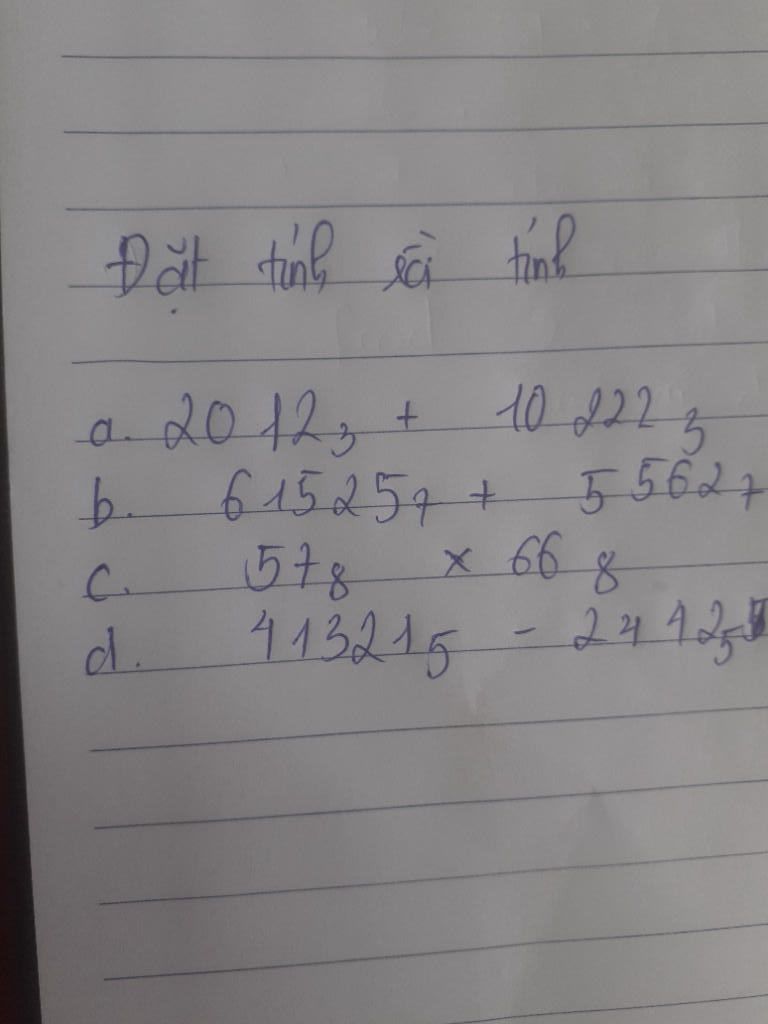 Đặt tính rồi tính
a. 2012₃ + 10222₃
b. 61525₇ + 5562₇
c. 57₈ × 66₈
d. 41321₅ - 2412₅